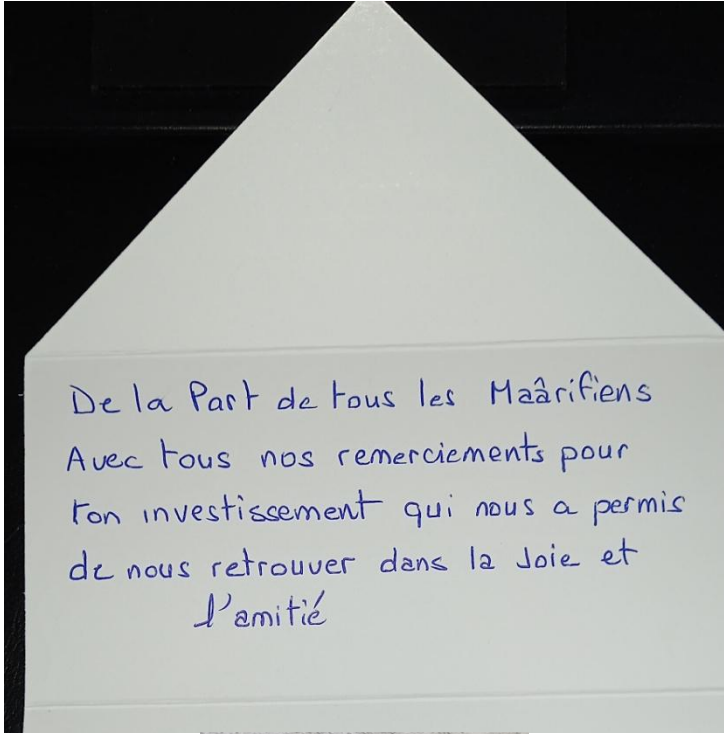 De la Part de tous les Maârifiens
Avec tous nos remerciements pour
ton investissement qui nous a permis
de nous retrouver dans la Joie et
l'amitié